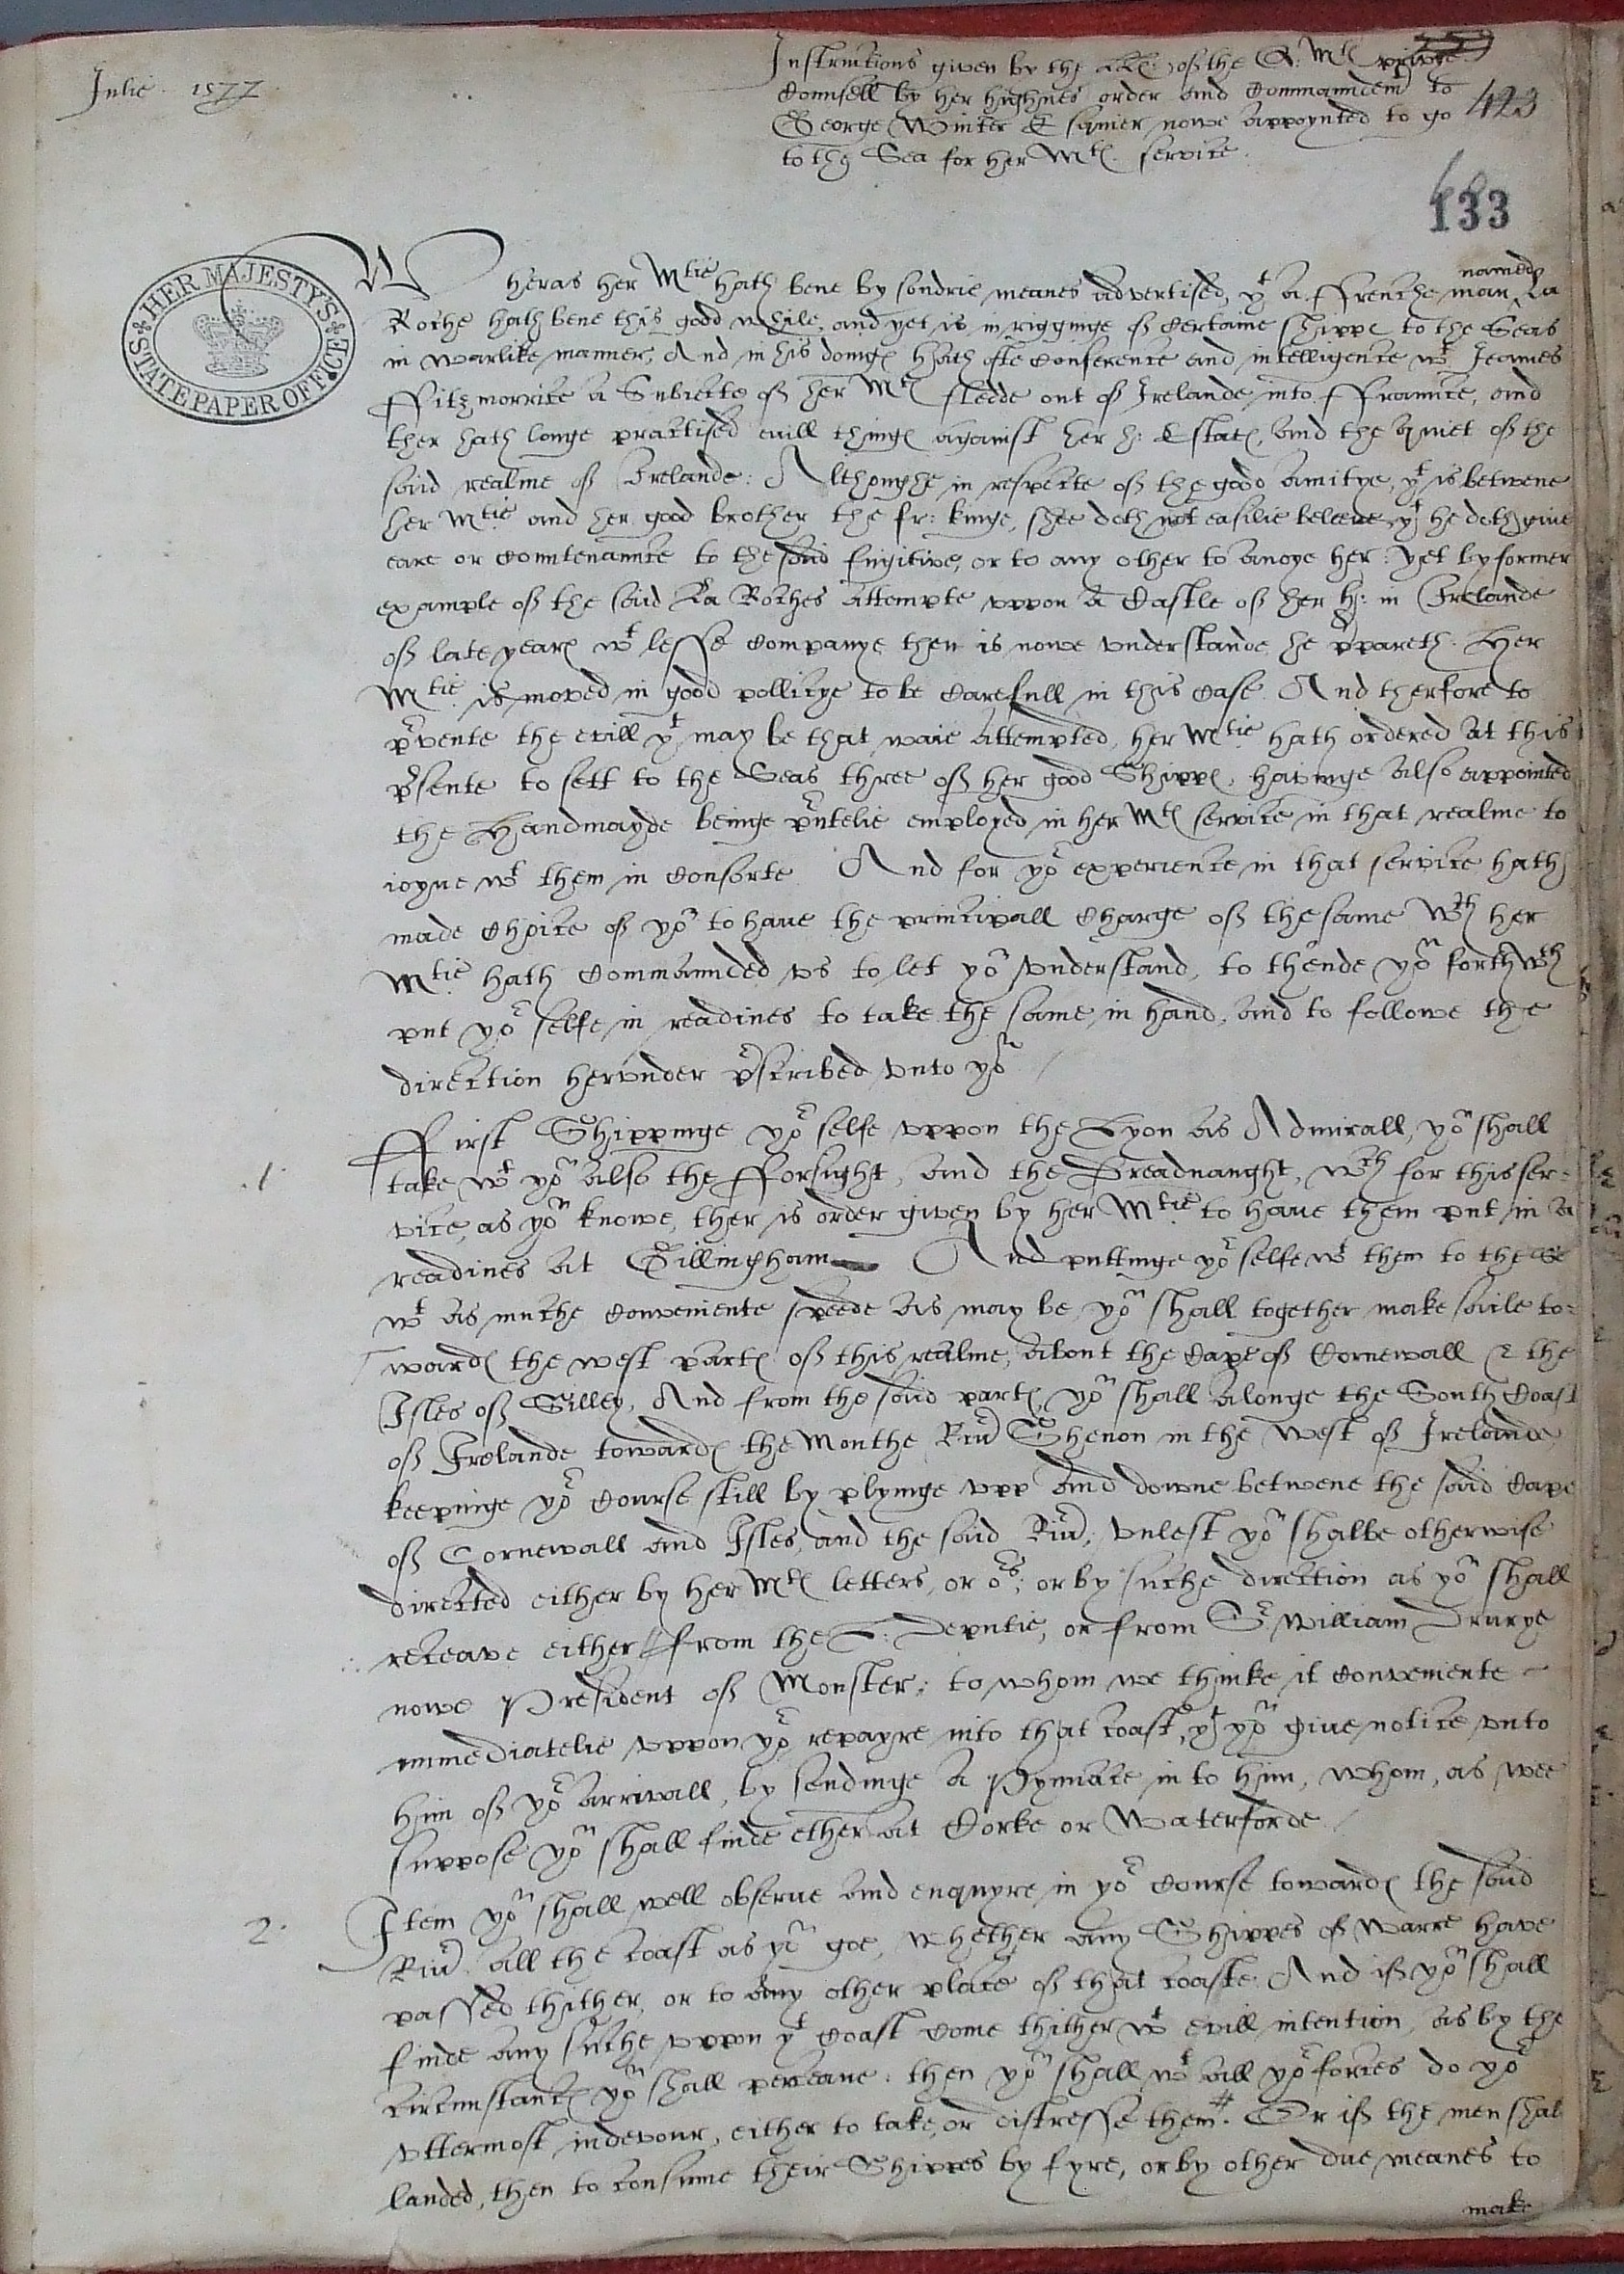 Julie. 1577.
Instructions given by the LL: of the Q: Mtes privye
Counsell by her highnes order and Commaundemt to
George Winter Esquier nowe appoynted to go
to the Sea for her Mtes service.
423
133
HER MAJESTY'S
STATE PAPER OFFICE
Wheras her Mtie hath bene by sondrie meanes advertised, yt a Ffrenche man named La
Roche hath bene this good while, and yet is in rigginge of certaine shippes to the Seas
in warlike manner, And in his doinges hath ofte conference and intelligence wt Jeames
Ffitzmorrice a Subiecte of her Mtes fledde out of Irelande into Ffraunce, and
ther hath longe practised evill thinges against her h: Estate, and the quiet of the
said realme of Irelande: Althoughe in respecte of the good amitye, yt is betwene
her Mtie and her good brother the fr: kinge, shee doth not easilie beleeve yt he doth give
eare or countenaunce to the said fugitive, or to any other to anoye her: yet by former
example of the said La Roches attempte uppon a Castle of her h: in Irelande
of late yeares wt lesse companye then is nowe understande he ppareth. Her
Mtie is moved in good pollicye to be carefull in this case. And therfore to
pvente the evill yt may be that waie attempted, her Mtie hath ordered at this
psente to sett to the Seas three of her good Shippes, havinge also appointed
the Handmayde beinge pntelie employed in her Mtes service in that realme to
ioyne wt them in consorte. And for yor experience in that service hath
made choice of you to have the principall charge of the same Wch her
Mtie hath Commaunded us to let you understand, to thende you forthwth
put yor selfe in readines to take the same in hand, and to followe the
direction herunder pscribed unto you
1.
Ffirst Shippinge yor selfe uppon the Lyon as Admirall, you shall
take wt you also the Fforsight, and the Dreadnaught, wch for this ser=
vice, as you knowe, ther is order given by her Mtie to have them put in a
readines at Gillingham And puttinge yor selfe wt them to the Se
wt as muche conveniente speede as may be, you shall together make saile to=
wardes the west partes of this realme, about the Cape of Cornewall & the
Isles of Silley, And from the said partes you shall alonge the South Coast
of Irelande towardes the Monthe Riv Shenon in the West of Irelande,
keepinge yor course still by plyinge upp and downe betwene the said Cape
of Cornewall and Isles, and the said Riv; unlest you shalbe otherwise
directed either by her Mtes letters, or ors; or by suche direction as you shall
receave either from the L: Deputie, or from Sr William Drurye
nowe President of Monster; to whom we thinke it conveniente
immediatelie uppon yor repayre into that coast, yt you give notice unto
him of yor arrivall, by sendinge a Pynnace in to him, whom, as wee
suppose you shall finde ether at Corke or Waterforde.
2.
Item you shall well observe and enquyre in yor course towardes the said
Riv. all the coast as you goe, whether any Shippes of warre have
passed thither, or to any other place of that coaste. And if you shall
finde any suche uppon yt coast come thither wt evill intention, as by the
circumstances you shall perceave: then you shall wt all yor forces do yor
uttermost indevour, either to take, or distresse them#. Or if the men shal
landed, then to consume their Shippes by fyre, or by other due meanes to
make